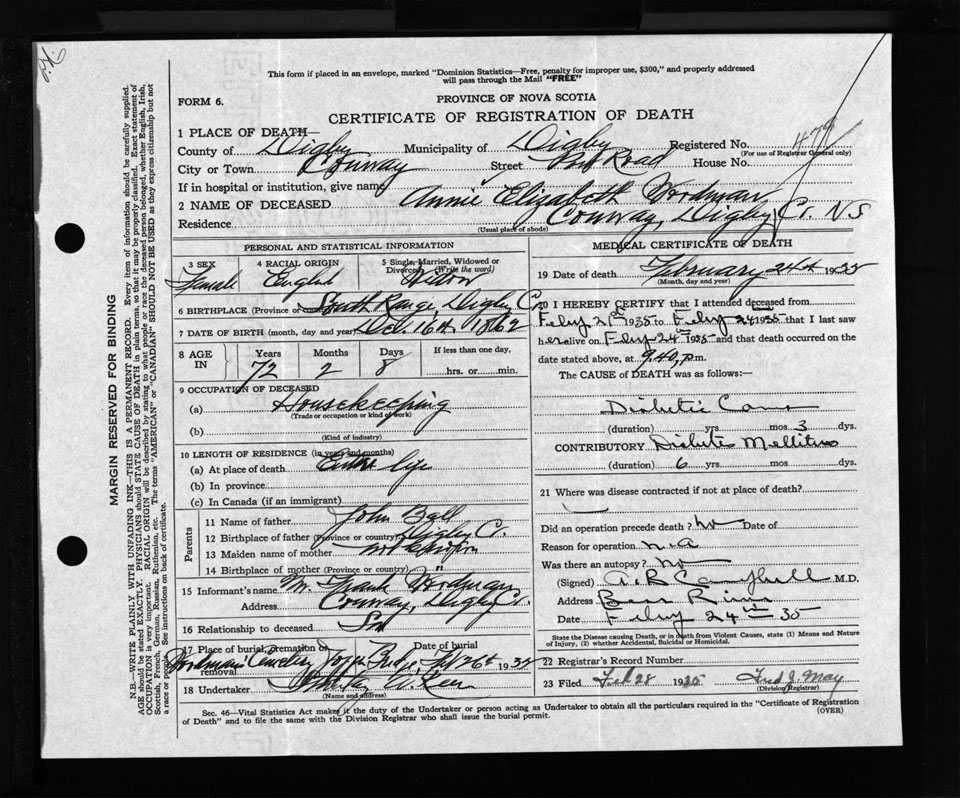 This form if placed in an envelope, marked "Dominion Statistics—Free, penalty for improper use, $300," and properly addressed
will pass through the Mail "FREE"
FORM 6.
PROVINCE OF NOVA SCOTIA
CERTIFICATE OF REGISTRATION OF DEATH
1 PLACE OF DEATH—
County of Digby Municipality of Digby Registered No. 479
(For use of Registrar General only)
City or Town Conway Street Road House No.
If in hospital or institution, give name
2 NAME OF DECEASED Annie Elizabeth Wordman
Residence Conway, Digby Co. NS
(Usual place of abode)
MARGIN RESERVED FOR BINDING
N.B.—WRITE PLAINLY WITH UNFADING INK—THIS IS A PERMANENT RECORD. Every item of information should be carefully supplied.
AGE should be stated EXACTLY. PHYSICIANS should STATE CAUSE OF DEATH in plain terms, so that it may be properly classified. Exact statement of
OCCUPATION is very important. RACIAL ORIGIN will be described by stating to what people or race the deceased person belonged, whether English, Irish,
Scottish, French, German, Russian, Ruthenian, etc. The terms "AMERICAN" or "CANADIAN" SHOULD NOT BE USED as they express citizenship but not
a race or people. See instructions on back of certificate.
PERSONAL AND STATISTICAL INFORMATION
3 SEX
Female
4 RACIAL ORIGIN
English
5 Single, Married, Widowed or
Divorced (Write the word)
Widow
6 BIRTHPLACE (Province or South Range, Digby Co
7 DATE OF BIRTH (month, day and year) Dec. 16th 1862
8 AGE IN
Years Months Days If less than one day,
72 2 8 hrs. or min.
9 OCCUPATION OF DECEASED
(a) Housekeeping
(Trade or occupation or kind of work)
(b)
(Kind of industry)
10 LENGTH OF RESIDENCE (in years and months)
(a) At place of death Entire life
(b) In province
(c) In Canada (if an immigrant)
Parents
11 Name of father John
12 Birthplace of father (Province or country) Digby Co.
13 Maiden name of mother not
14 Birthplace of mother (Province or country) "
15 Informant's name Mr. Frank Wordman
Address Conway, Digby Co.
16 Relationship to deceased Son
17 Place of burial, cremation or removal Date of burial
Cemetery Feb 26th 1935
18 Undertaker
(Name and address)
MEDICAL CERTIFICATE OF DEATH
19 Date of death February 24th 1935
(Month, day and year)
20 I HEREBY CERTIFY that I attended deceased from
Feby 21st 1935 to Feby 24 1935 that I last saw
her alive on Feby 24th 1935 and that death occurred on the
date stated above, at 9.40, p.m.
The CAUSE of DEATH was as follows:—
Diabetic Coma
(duration) yrs. mos 3 dys.
CONTRIBUTORY Diabetes Mellitus
(duration) 6 yrs. mos. dys.
21 Where was disease contracted if not at place of death?
Did an operation precede death? no Date of
Reason for operation n.a
Was there an autopsy? no
(Signed) A. B Campbell M.D.
Address Bear River
Date Feby 24th 35
State the Disease causing Death, or in death from Violent Causes, state (1) Means and Nature
of Injury, (2) whether Accidental, Suicidal or Homicidal.
22 Registrar's Record Number
23 Filed Feb 28 1935 Fred J. May
(Division Registrar)
Sec. 46—Vital Statistics Act makes it the duty of the Undertaker or person acting as Undertaker to obtain all the particulars required in the "Certificate of Registration
of Death" and to file the same with the Division Registrar who shall issue the burial permit. (OVER)